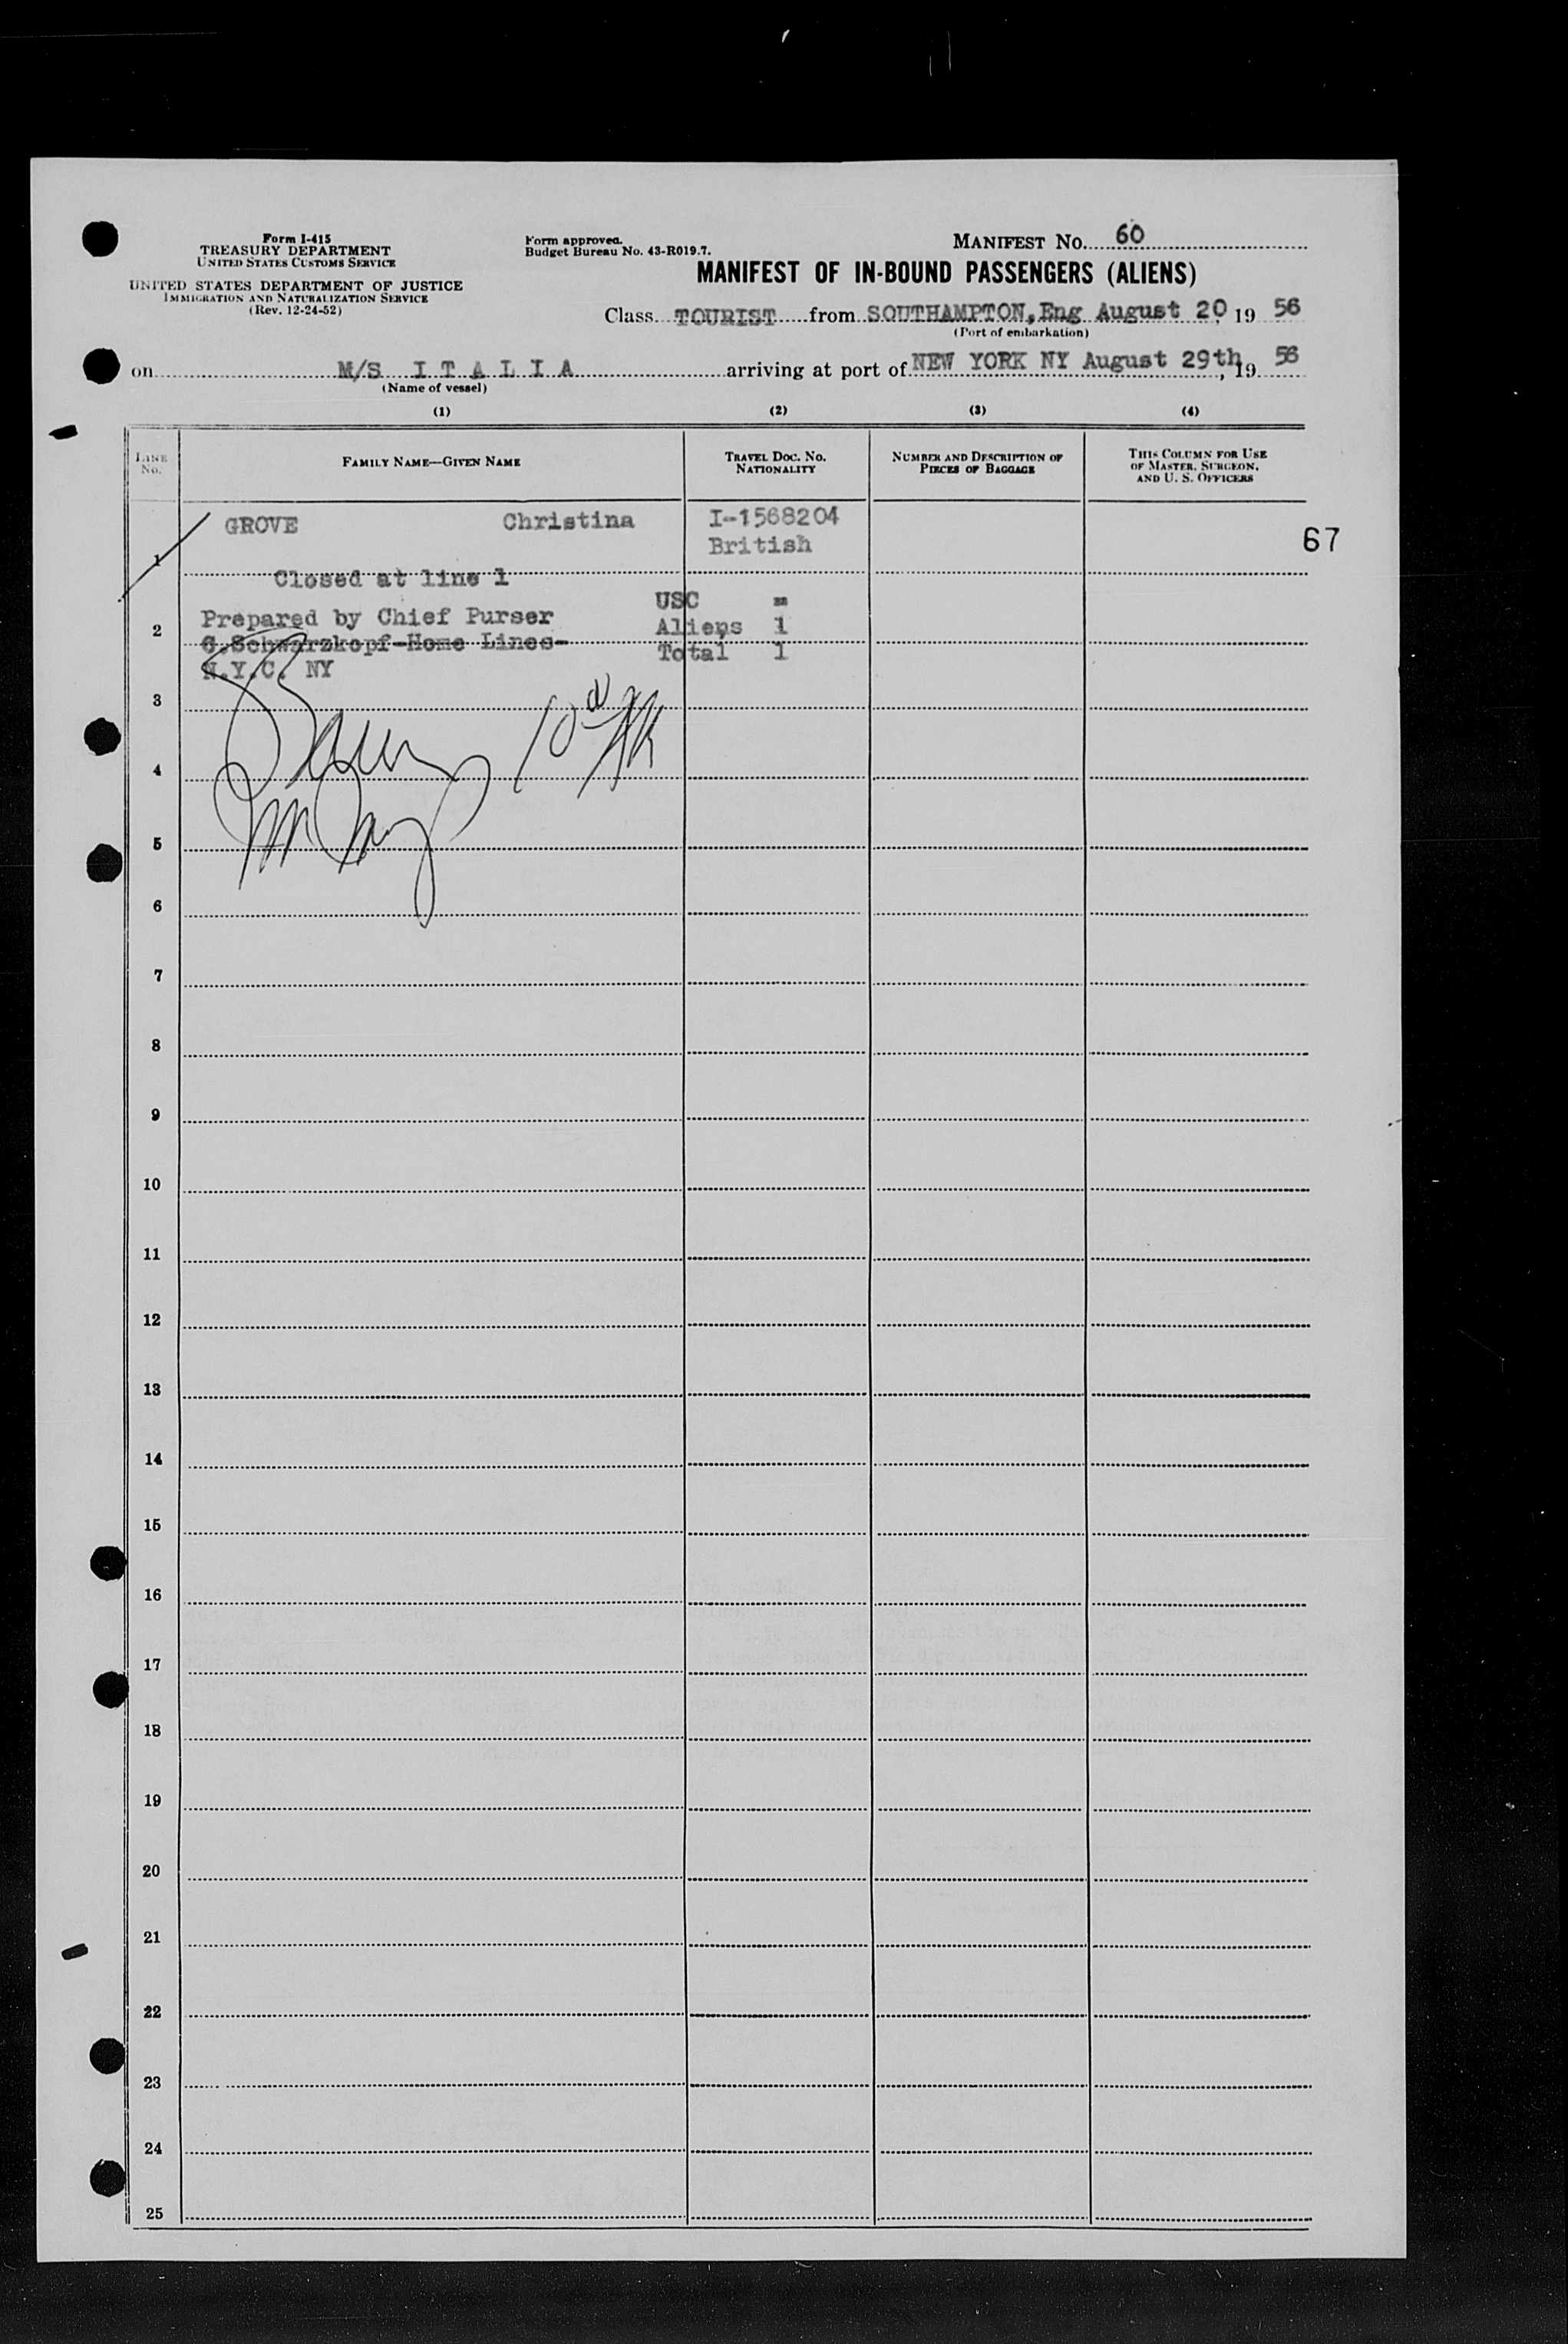 Form I-415
TREASURY DEPARTMENT
UNITED STATES CUSTOMS SERVICE
UNITED STATES DEPARTMENT OF JUSTICE
IMMIGRATION AND NATURALIZATION SERVICE
(Rev. 12-24-52)
Form approved.
Budget Bureau No. 43-R019.7.
MANIFEST No. 60
MANIFEST OF IN-BOUND PASSENGERS (ALIENS)
Class TOURIST from SOUTHAMPTON, Eng August 20, 19 56
(Port of embarkation)
on M/S I T A L I A arriving at port of NEW YORK NY August 29th, 19 56
(Name of vessel)
(1) (2) (3) (4)
LINE No. FAMILY NAME—GIVEN NAME TRAVEL DOC. No. NATIONALITY NUMBER AND DESCRIPTION OF PIECES OF BAGGAGE THIS COLUMN FOR USE OF MASTER, SURGEON, AND U. S. OFFICERS
GROVE Christina I-1568204
British
67
1
Closed at line 1
USC =
Prepared by Chief Purser
Aliens 1
2
G.Schwarzkopf-Home Lines-
Total 1
N.Y.C. NY
3
4
5
6
7
8
9
10
11
12
13
14
15
16
17
18
19
20
21
22
23
24
25